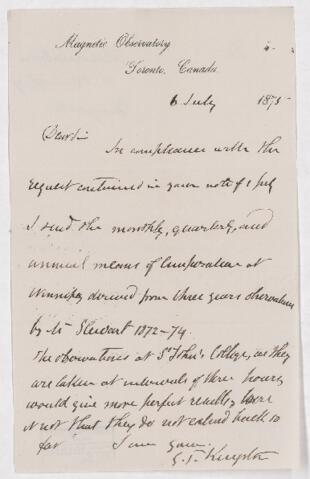 Magnetic Observatory
Toronto, Canada.
6 July 1875
Dear Sir
In compliance with the
request contained in your note of 1 July
I send the monthly, quarterly, and
annual means of temperature at
Winnipeg derived from three years observations
by Mr Stewart 1872-74.
The observations at St John's College, as they
are taken at intervals of three hours,
would give more perfect results, were
it not that they do not extend back so
far I am yours
G. T. Kingston